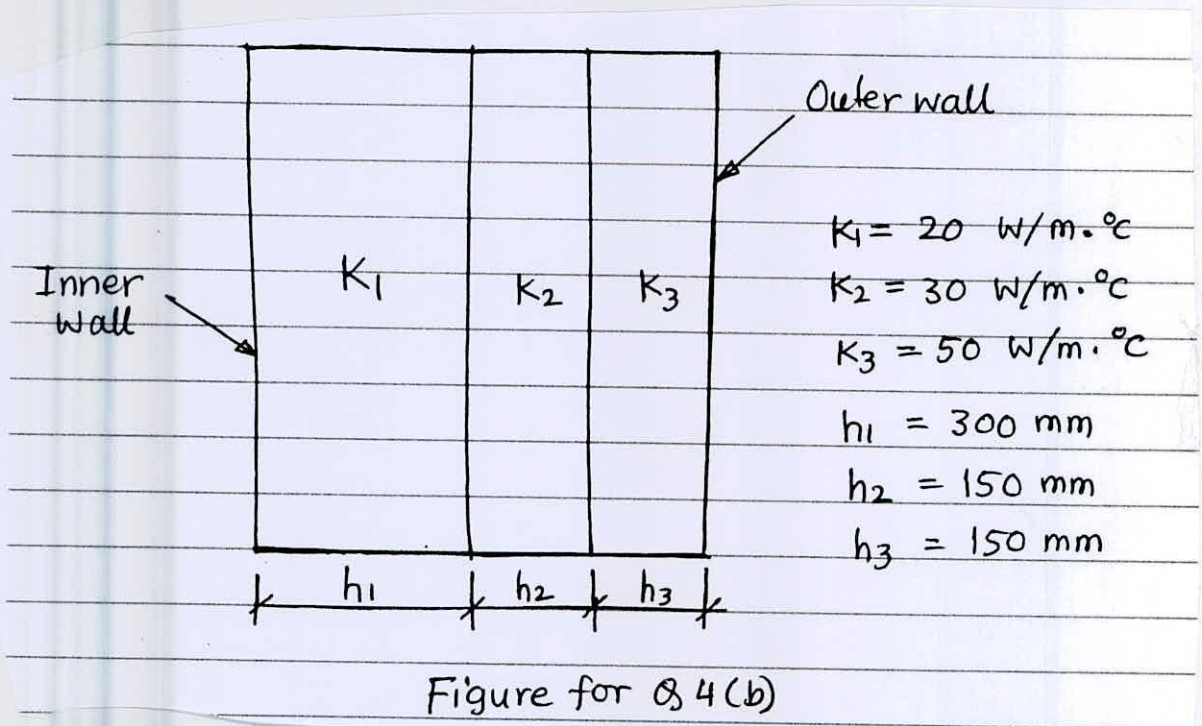 Outer wall
Inner
wall
K1
K2
K3
K1 = 20 W/m.°C
K2 = 30 W/m.°C
K3 = 50 W/m.°C
h1 = 300 mm
h2 = 150 mm
h3 = 150 mm
h1
h2
h3
Figure for Q 4(b)